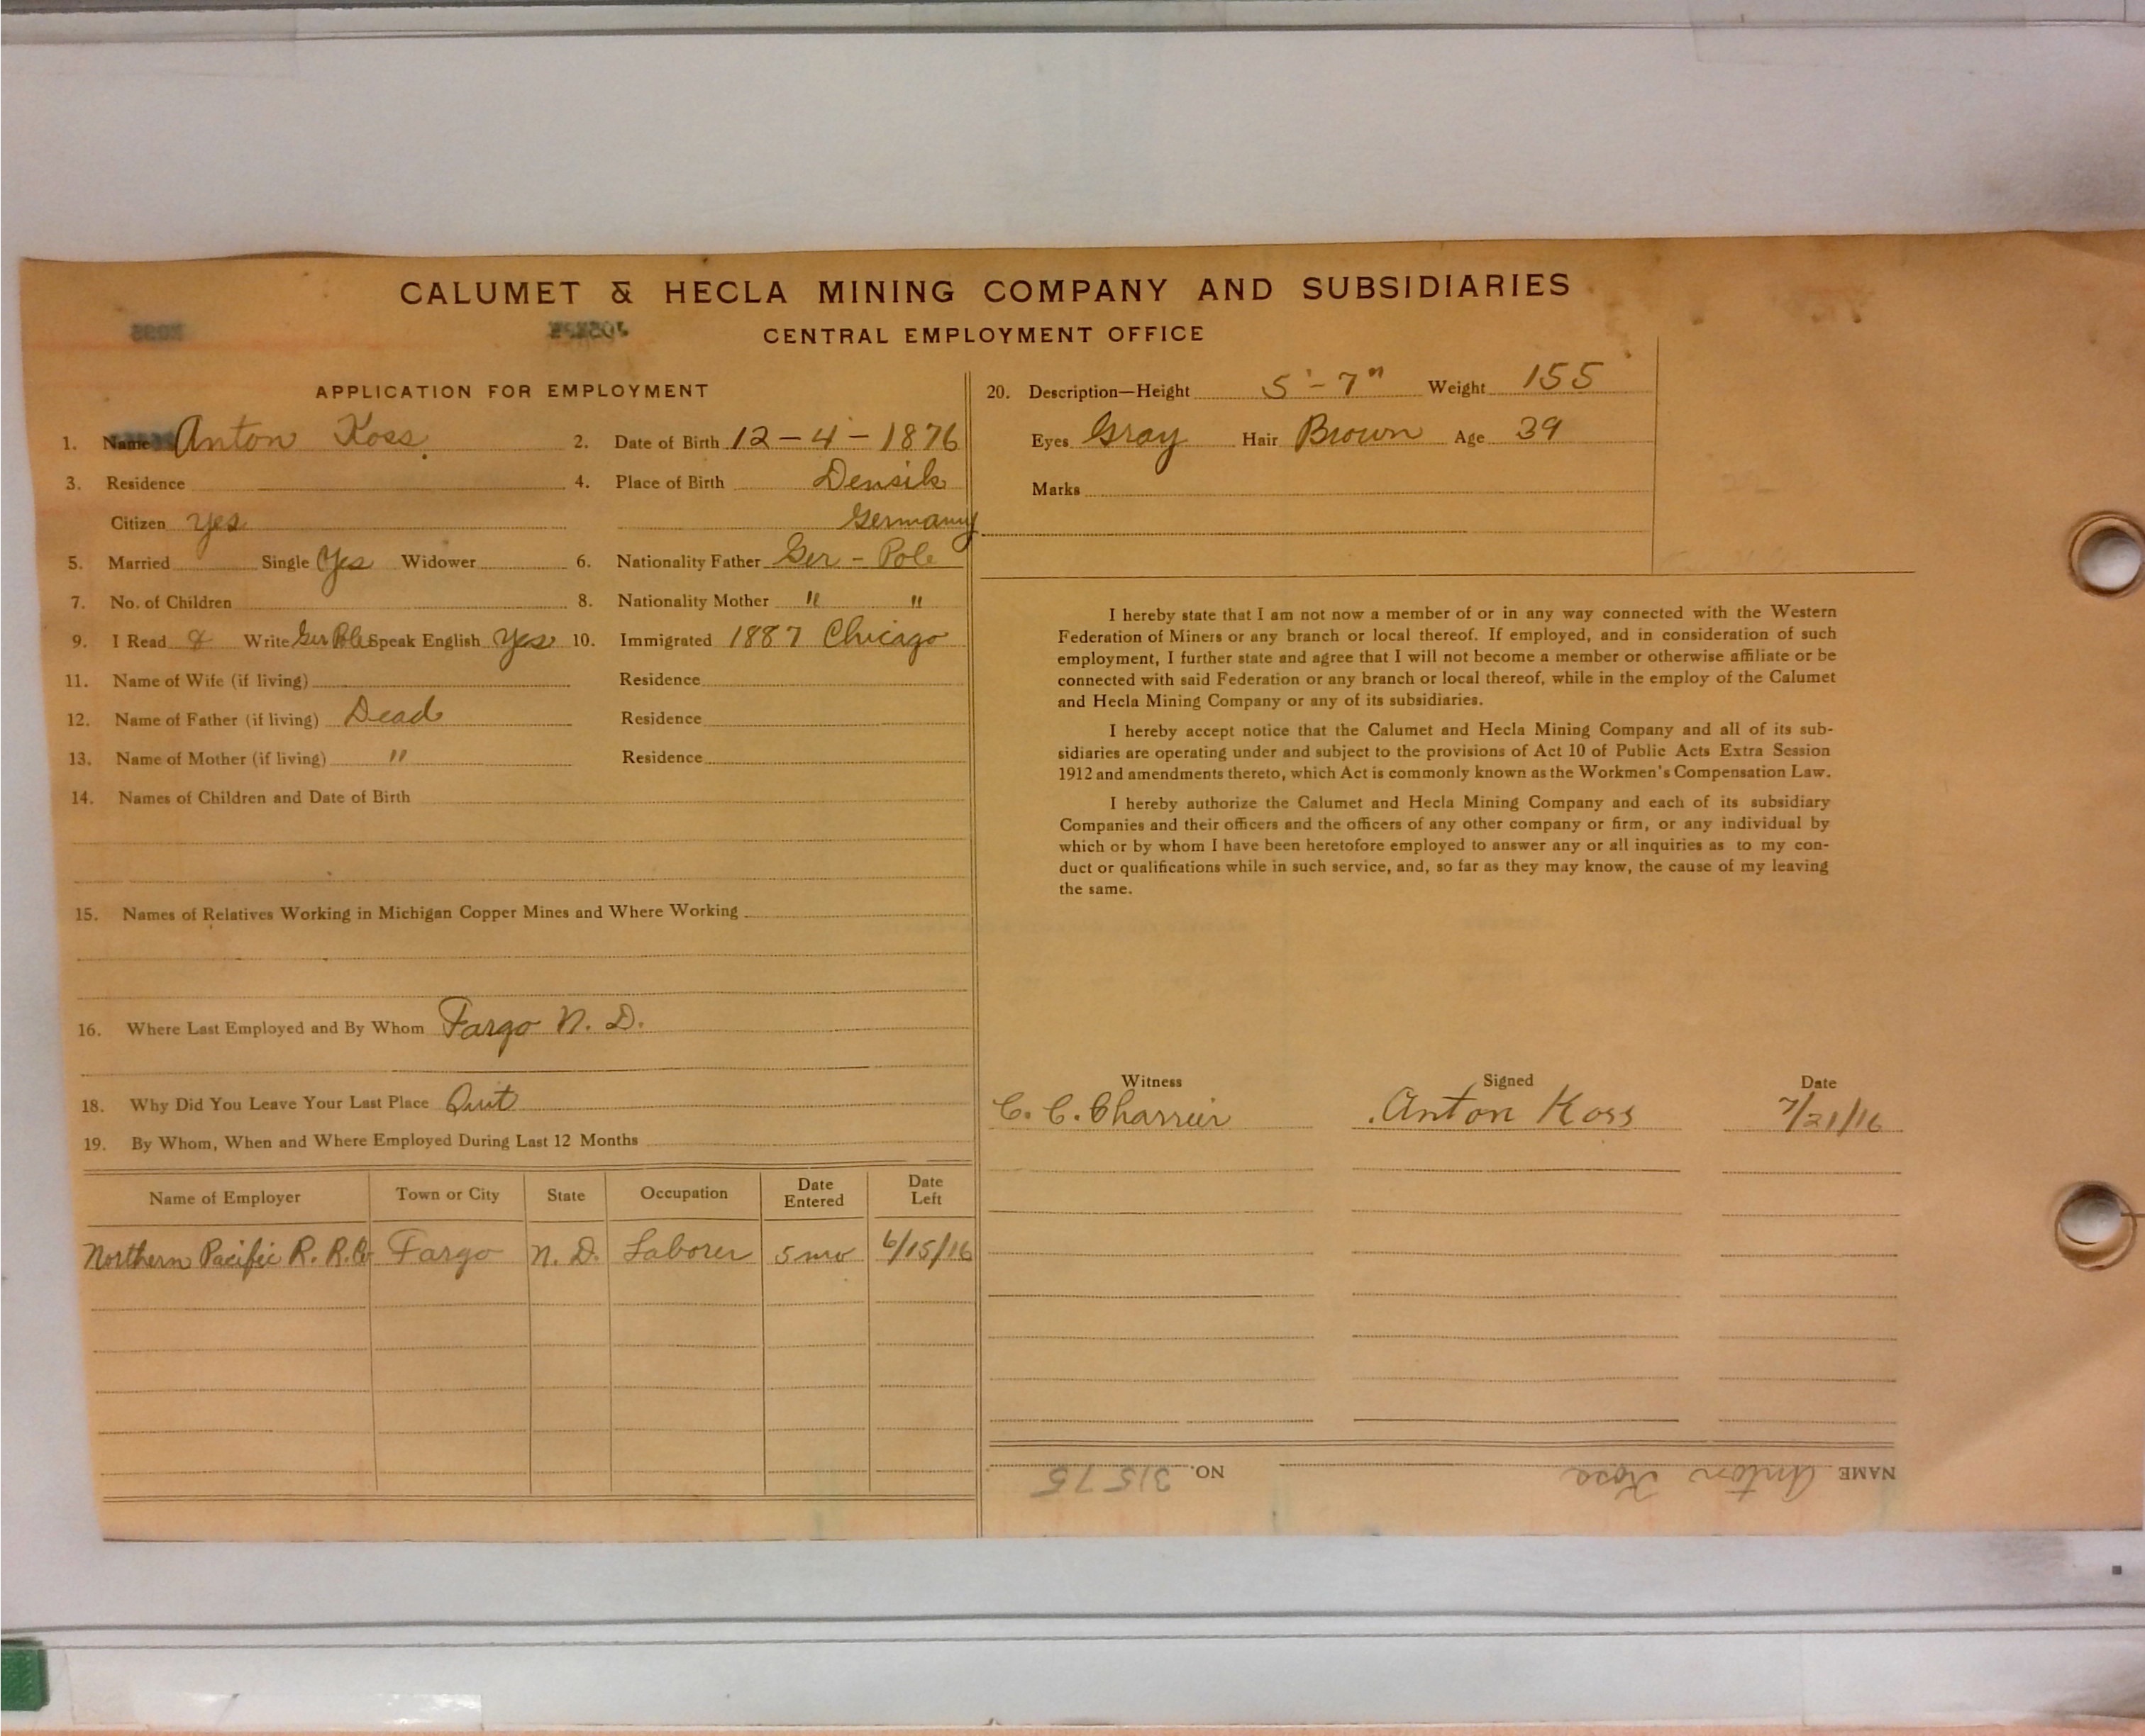 CALUMET & HECLA MINING COMPANY AND SUBSIDIARIES
CENTRAL EMPLOYMENT OFFICE
APPLICATION FOR EMPLOYMENT
1. Name Anton Koss 2. Date of Birth 12-4-1876
3. Residence 4. Place of Birth Densik
Citizen Yes Germany
5. Married Single Yes Widower 6. Nationality Father Ger - Pole
7. No. of Children 8. Nationality Mother " "
9. I Read & Write Ger Pole Speak English Yes 10. Immigrated 1887 Chicago
11. Name of Wife (if living) Residence
12. Name of Father (if living) Dead Residence
13. Name of Mother (if living) " Residence
14. Names of Children and Date of Birth
15. Names of Relatives Working in Michigan Copper Mines and Where Working
16. Where Last Employed and By Whom Fargo N. D.
18. Why Did You Leave Your Last Place Quit
19. By Whom, When and Where Employed During Last 12 Months
Name of Employer Town or City State Occupation Date Entered Date Left
Northern Pacific R. R. Co Fargo N. D. Laborer 5 mo 6/15/16
20. Description—Height 5'-7" Weight 155
Eyes Gray Hair Brown Age 39
Marks
I hereby state that I am not now a member of or in any way connected with the Western
Federation of Miners or any branch or local thereof. If employed, and in consideration of such
employment, I further state and agree that I will not become a member or otherwise affiliate or be
connected with said Federation or any branch or local thereof, while in the employ of the Calumet
and Hecla Mining Company or any of its subsidiaries.
I hereby accept notice that the Calumet and Hecla Mining Company and all of its sub-
sidiaries are operating under and subject to the provisions of Act 10 of Public Acts Extra Session
1912 and amendments thereto, which Act is commonly known as the Workmen's Compensation Law.
I hereby authorize the Calumet and Hecla Mining Company and each of its subsidiary
Companies and their officers and the officers of any other company or firm, or any individual by
which or by whom I have been heretofore employed to answer any or all inquiries as to my con-
duct or qualifications while in such service, and, so far as they may know, the cause of my leaving
the same.
Witness Signed Date
C. C. Charrier Anton Koss 7/21/16
NAME Anton Koss NO. 31575